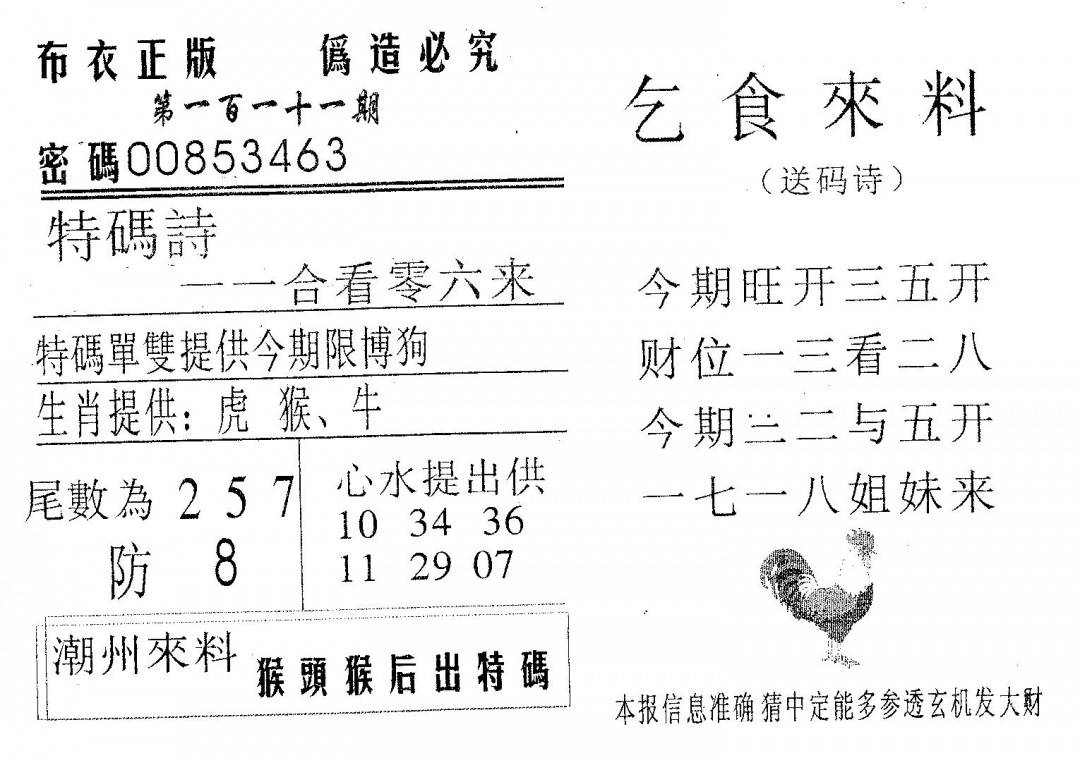 布衣正版 僞造必究
第一百一十一期
密碼00853463
特碼詩
一一合看零六来
特碼單雙提供今期限博狗
生肖提供：虎 猴、牛
尾數為 2 5 7
防 8
心水提出供
10 34 36
11 29 07
潮州來料 猴頭猴后出特碼
乞食來料
（送码诗）
今期旺开三五开
财位一三看二八
今期三二与五开
一七一八姐妹来
本报信息准确猜中定能多参透玄机发大财